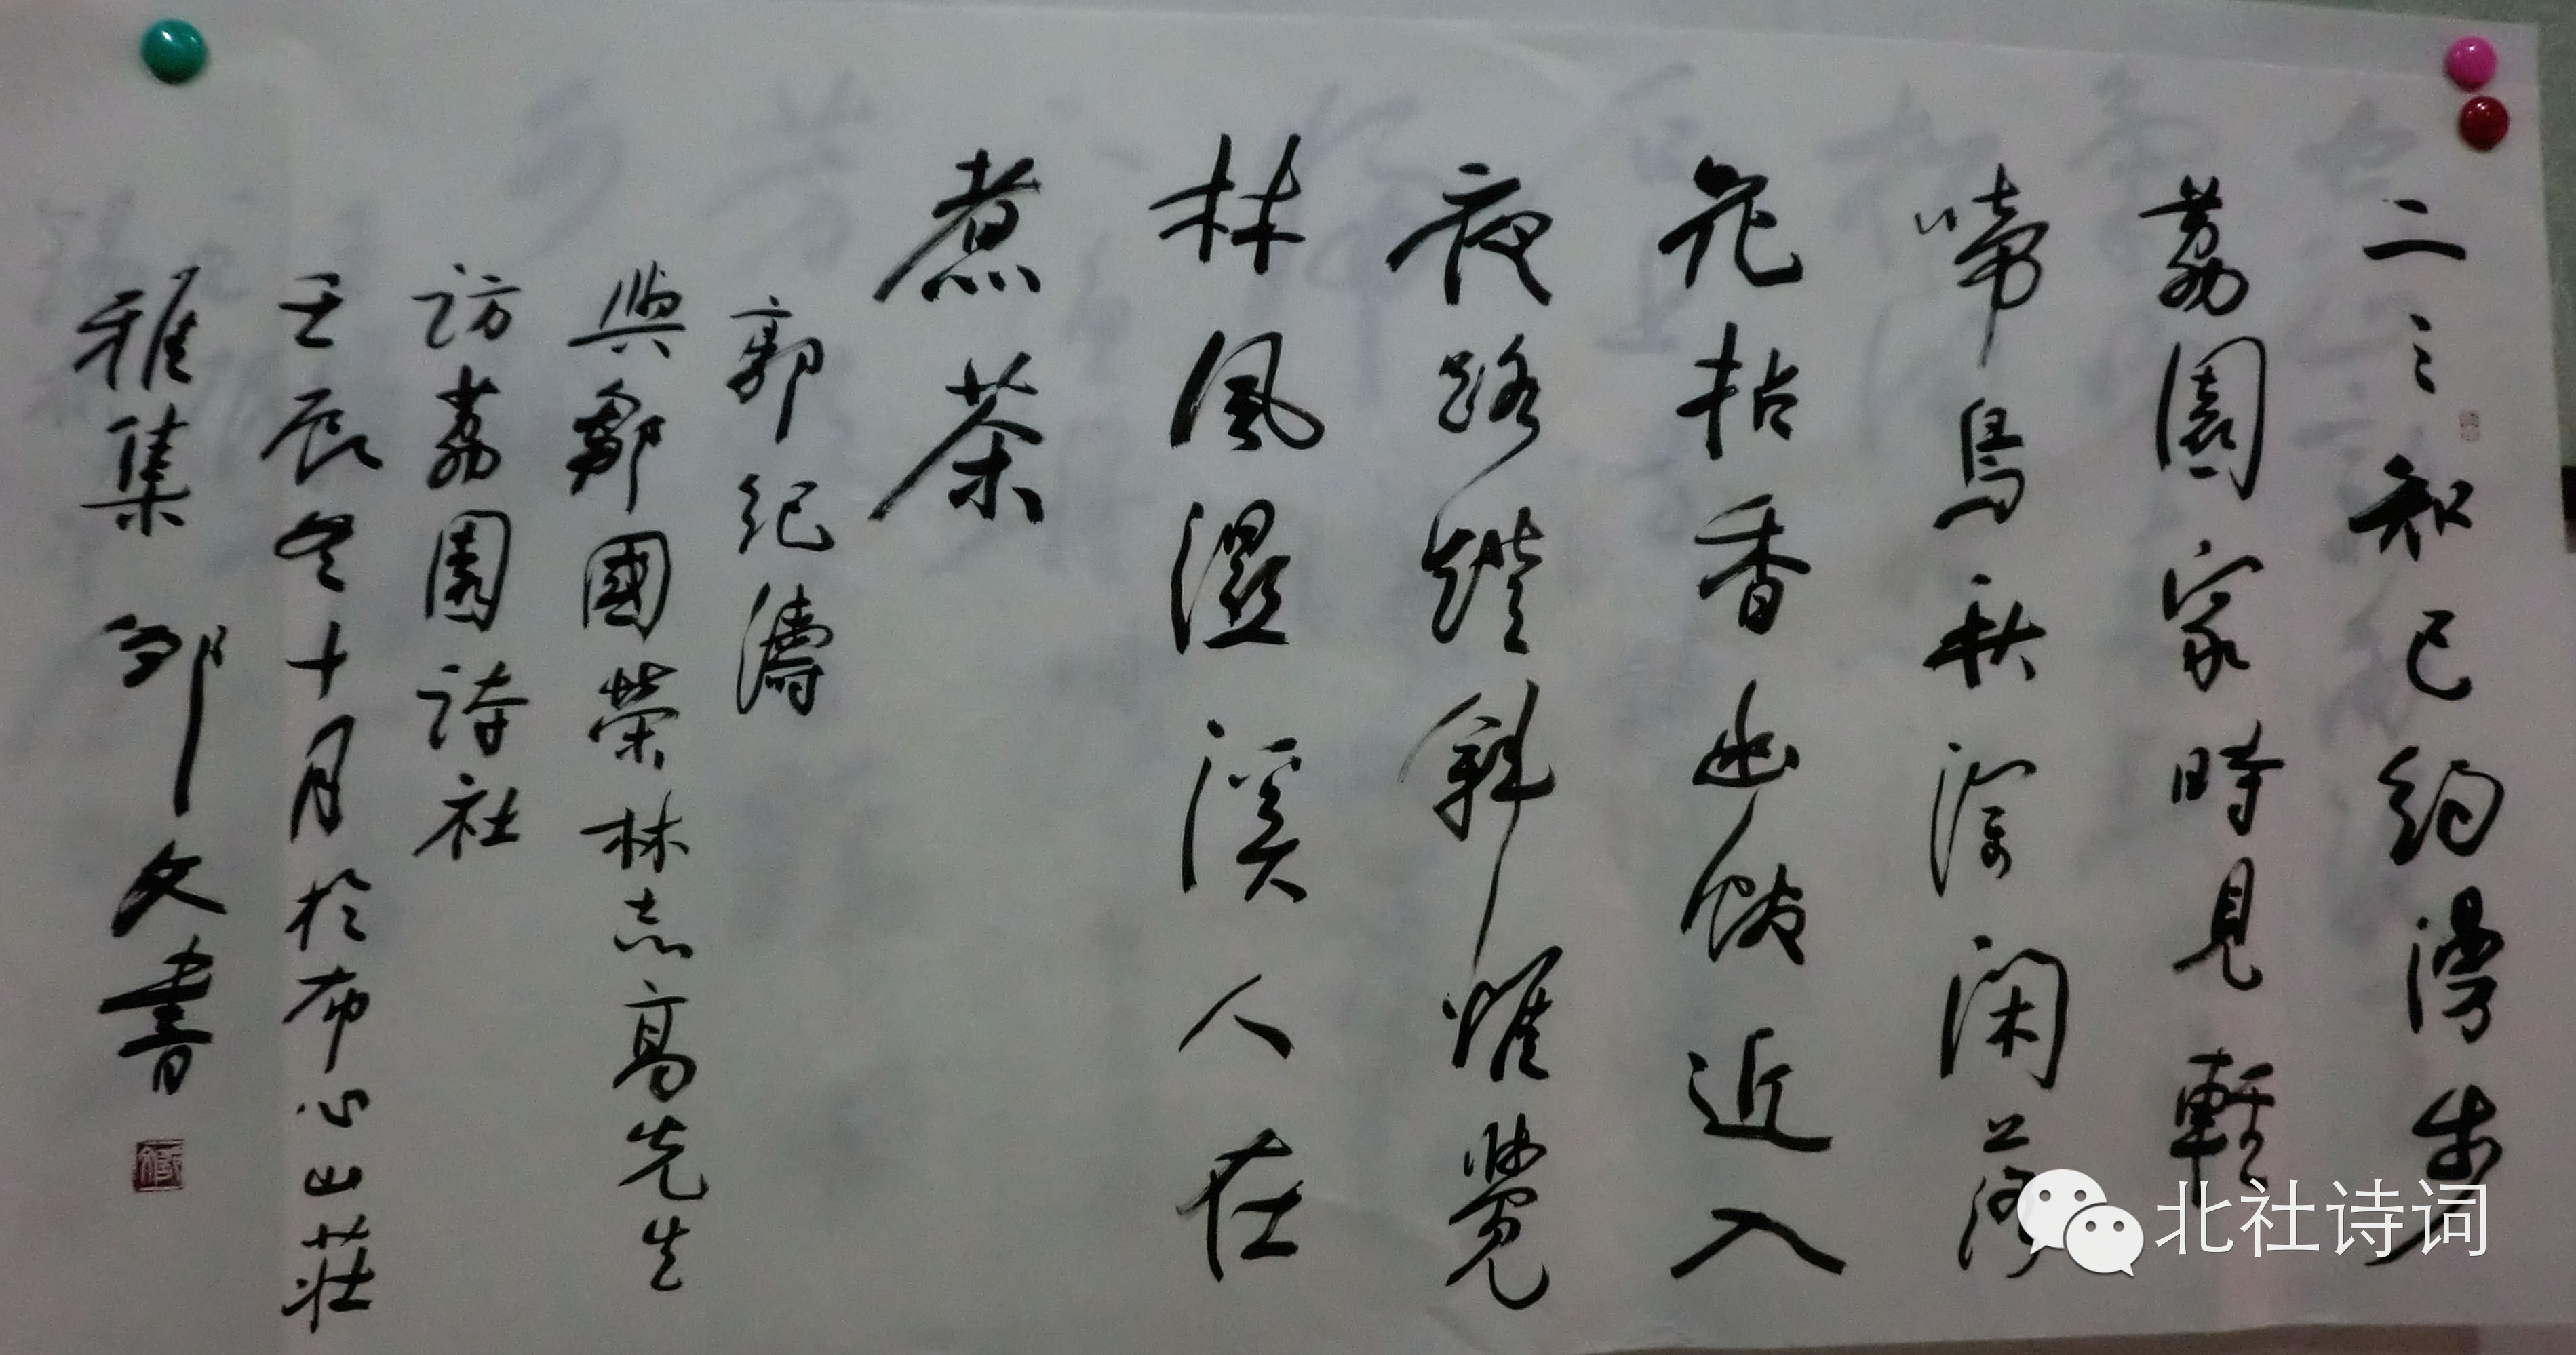 二三知己約漫步
荔園家時見輕
啼鳥秋深閑落
花拈香幽徑近入
夜路燈斜惟覺
林風濕溪人在
煮茶
郭紀濤
與鄒國榮林志高先生
訪荔園詩社
壬辰冬十月於布心山莊
雅集 鄒文書
北社诗词